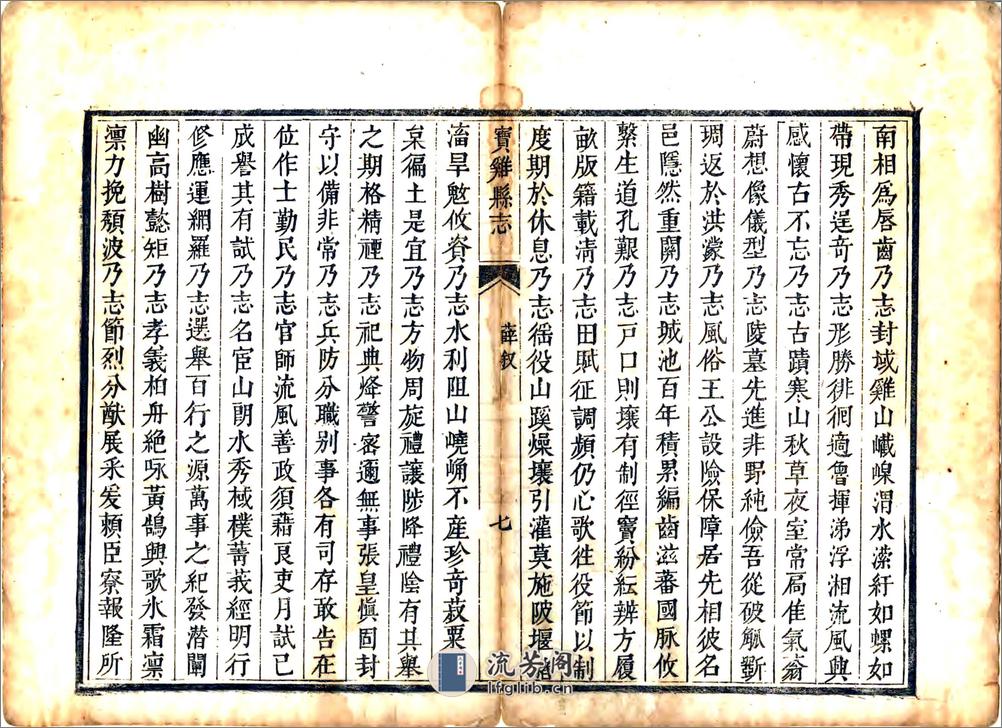 南相爲唇齒乃志封域雞山巇嵲渭水潆紆如螺如
帶現秀逞奇乃志形勝徘徊適魯揮涕浮湘流風與
感懷古不忘乃志古蹟寒山秋草夜室常扃隹氣蓊
蔚想像儀型乃志陵墓先進非野純儉吾從破觚斵
琱返於洪濛乃志風俗王公設險保障居先相彼名
邑隱然重關乃志城池百年積累編齒滋蕃國脉攸
繫生道孔艱乃志戸口則壤有制徑竇紛紜辨方履
畝版籍載淸乃志田賦征調頻仍心歌徃役節以制
度期於休息乃志徭役山蹊燥壤引灌莫施陂堰
寶雞縣志
薛叙
七
湽旱魃攸資乃志水利阻山嶢崅不産珍奇菽粟
枲徧土是宜乃志方物周旋禮讓陟降禮陰有其舉
之期格精禋乃志祀典烽警宻邇無事張皇愼固封
守以備非常乃志兵防分職别事各有司存敢告在
位作士勤民乃志官師流風善政須藉良吏月試已
成譽其有試乃志名宦山朗水秀棫樸菁莪經明行
修應運網羅乃志選舉百行之源萬事之紀發潛闡
幽高樹懿矩乃志孝義柏舟絶咏黃鵠興歌氷霜凛
凛力挽頽波乃志節烈分猷展采爰頼臣寮報隆所
流芳阁
lfglib.cn